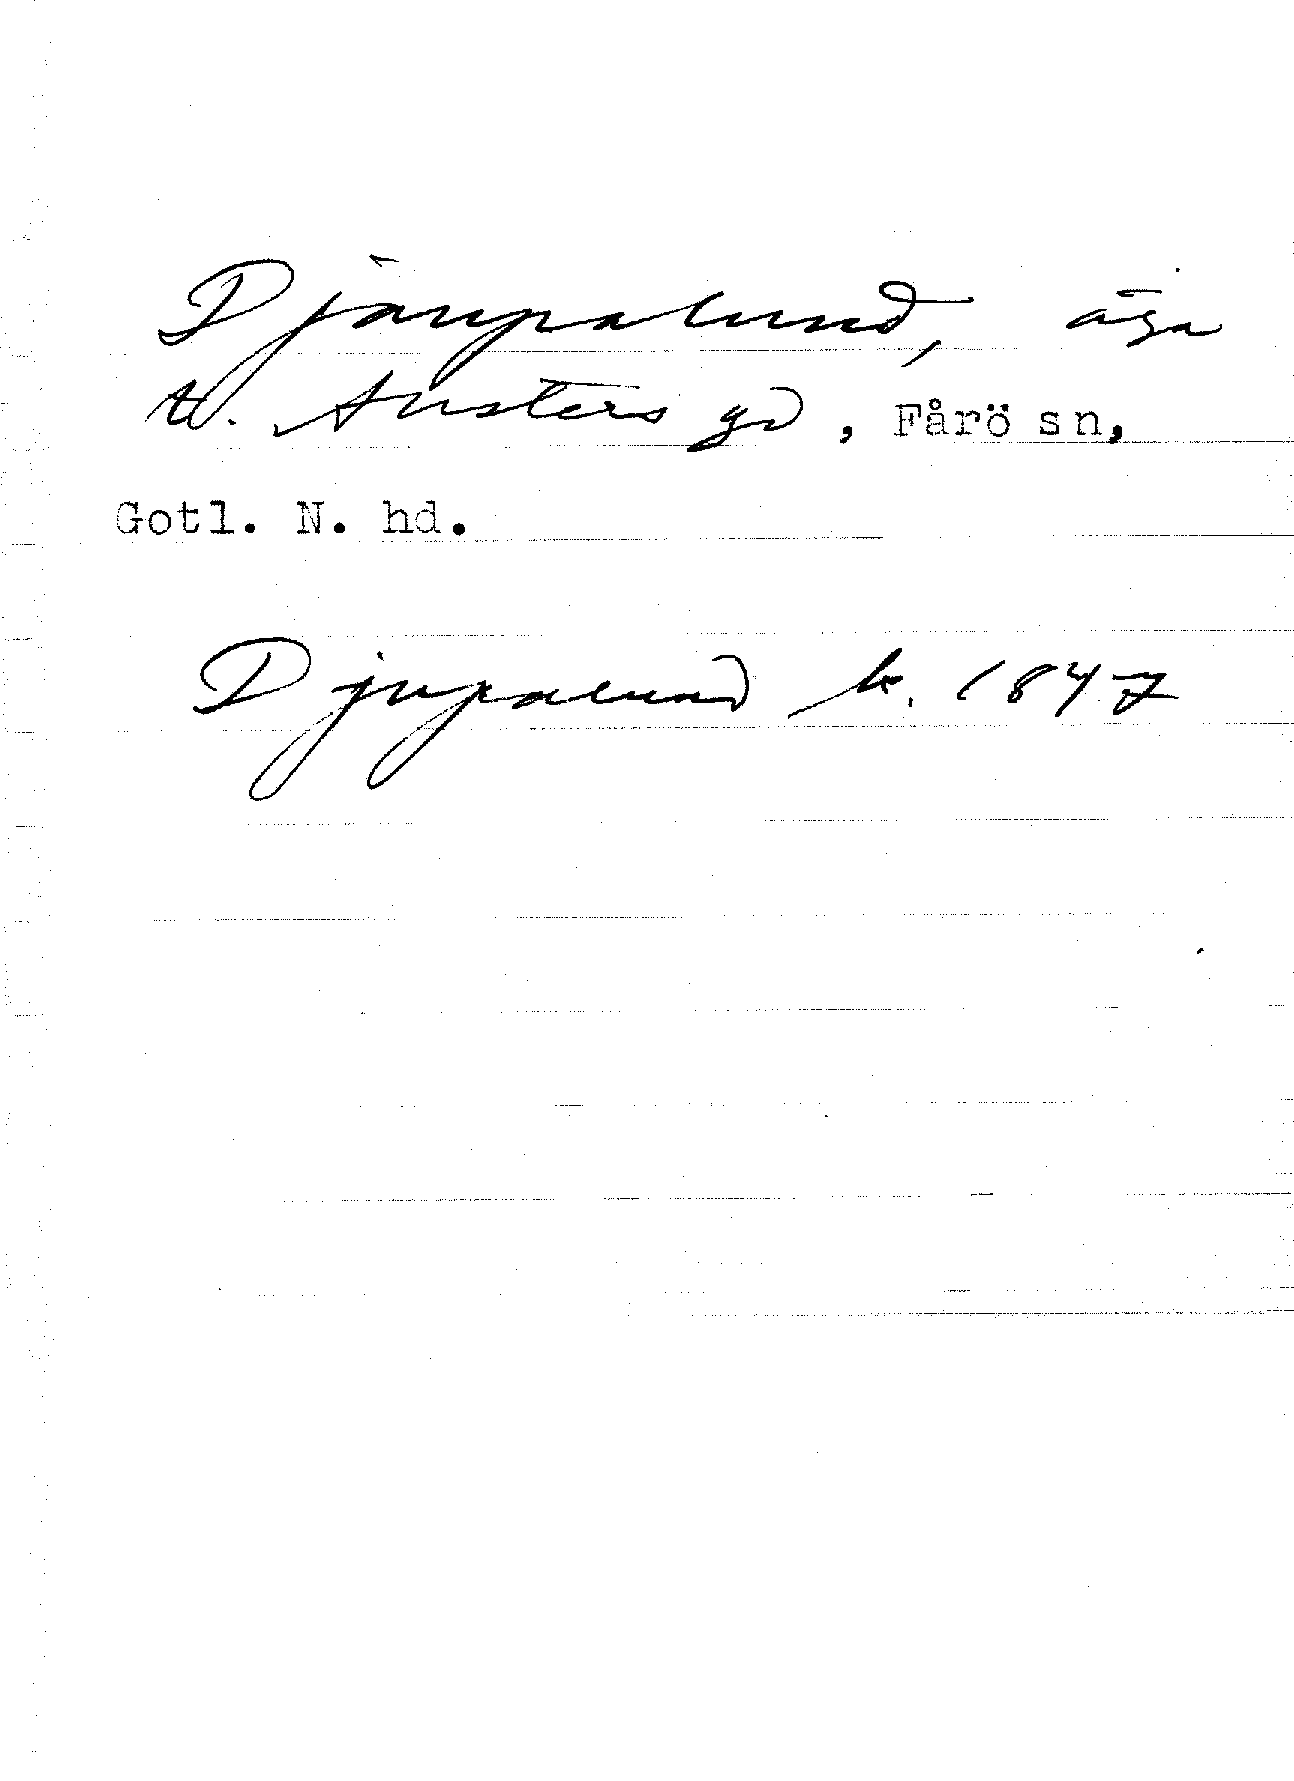 Djaupalund, äga
t. Austers gd, Fårö sn,
Gotl. N. hd.
Djupalund k. 1847